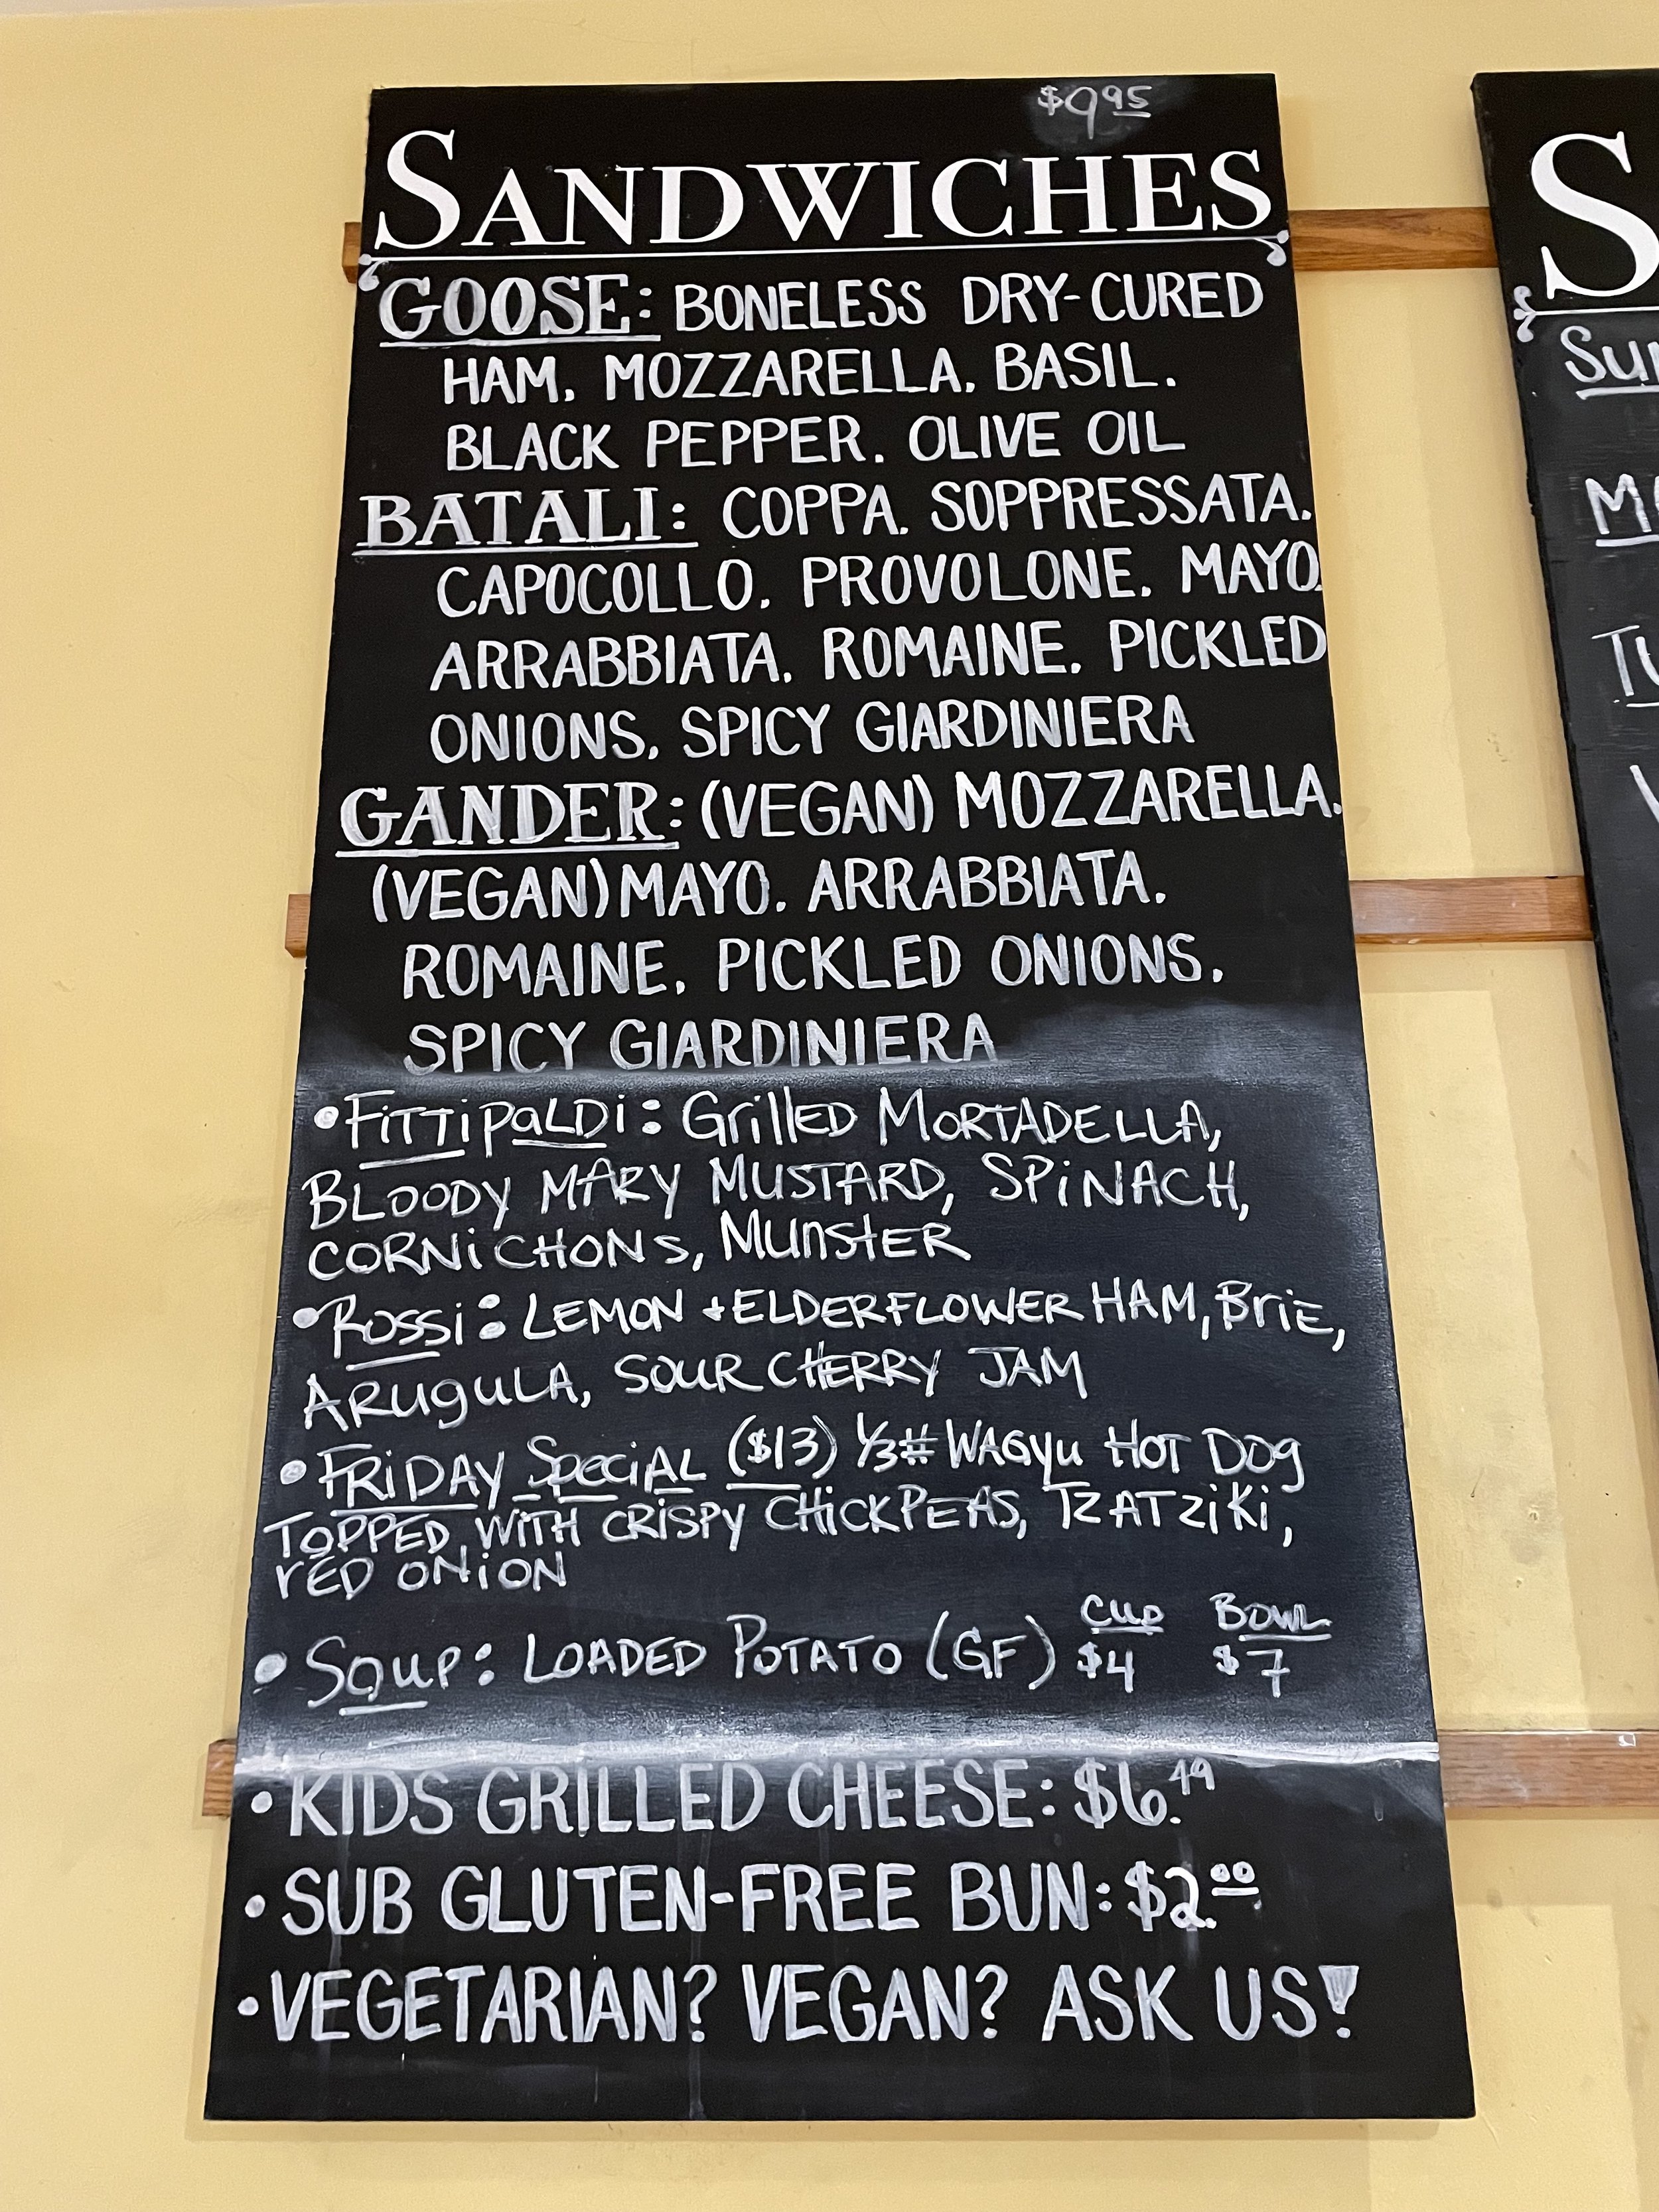 $9.95
SANDWICHES
GOOSE: BONELESS DRY-CURED
HAM, MOZZARELLA, BASIL,
BLACK PEPPER, OLIVE OIL
BATALI: COPPA, SOPPRESSATA,
CAPOCOLLO, PROVOLONE, MAYO,
ARRABBIATA, ROMAINE, PICKLED
ONIONS, SPICY GIARDINIERA
GANDER: (VEGAN) MOZZARELLA,
(VEGAN) MAYO, ARRABBIATA,
ROMAINE, PICKLED ONIONS,
SPICY GIARDINIERA
• FiTTipaLDi: Grilled MORTADELLA,
BLOODY MARY MUSTARD, SPiNACH,
CORNiCHONS, MUnstER
• Rossi: LEMON + ELDERFLOWER HAM, BriE,
ARuguLA, SOUR CHERRY JAM
• FRiDAY SpeciAL ($13) 1/3# WAGyu HOT DOg
TOPPED WITH CRiSPY CHiCKPEAS, TZATZiKi,
rED ONiON
CUP BOWL
• Soup: LOADED POTATO (GF) $4 $7
• KIDS GRILLED CHEESE: $6.49
• SUB GLUTEN-FREE BUN: $2.00
• VEGETARIAN? VEGAN? ASK US!
S
Su
M
TU